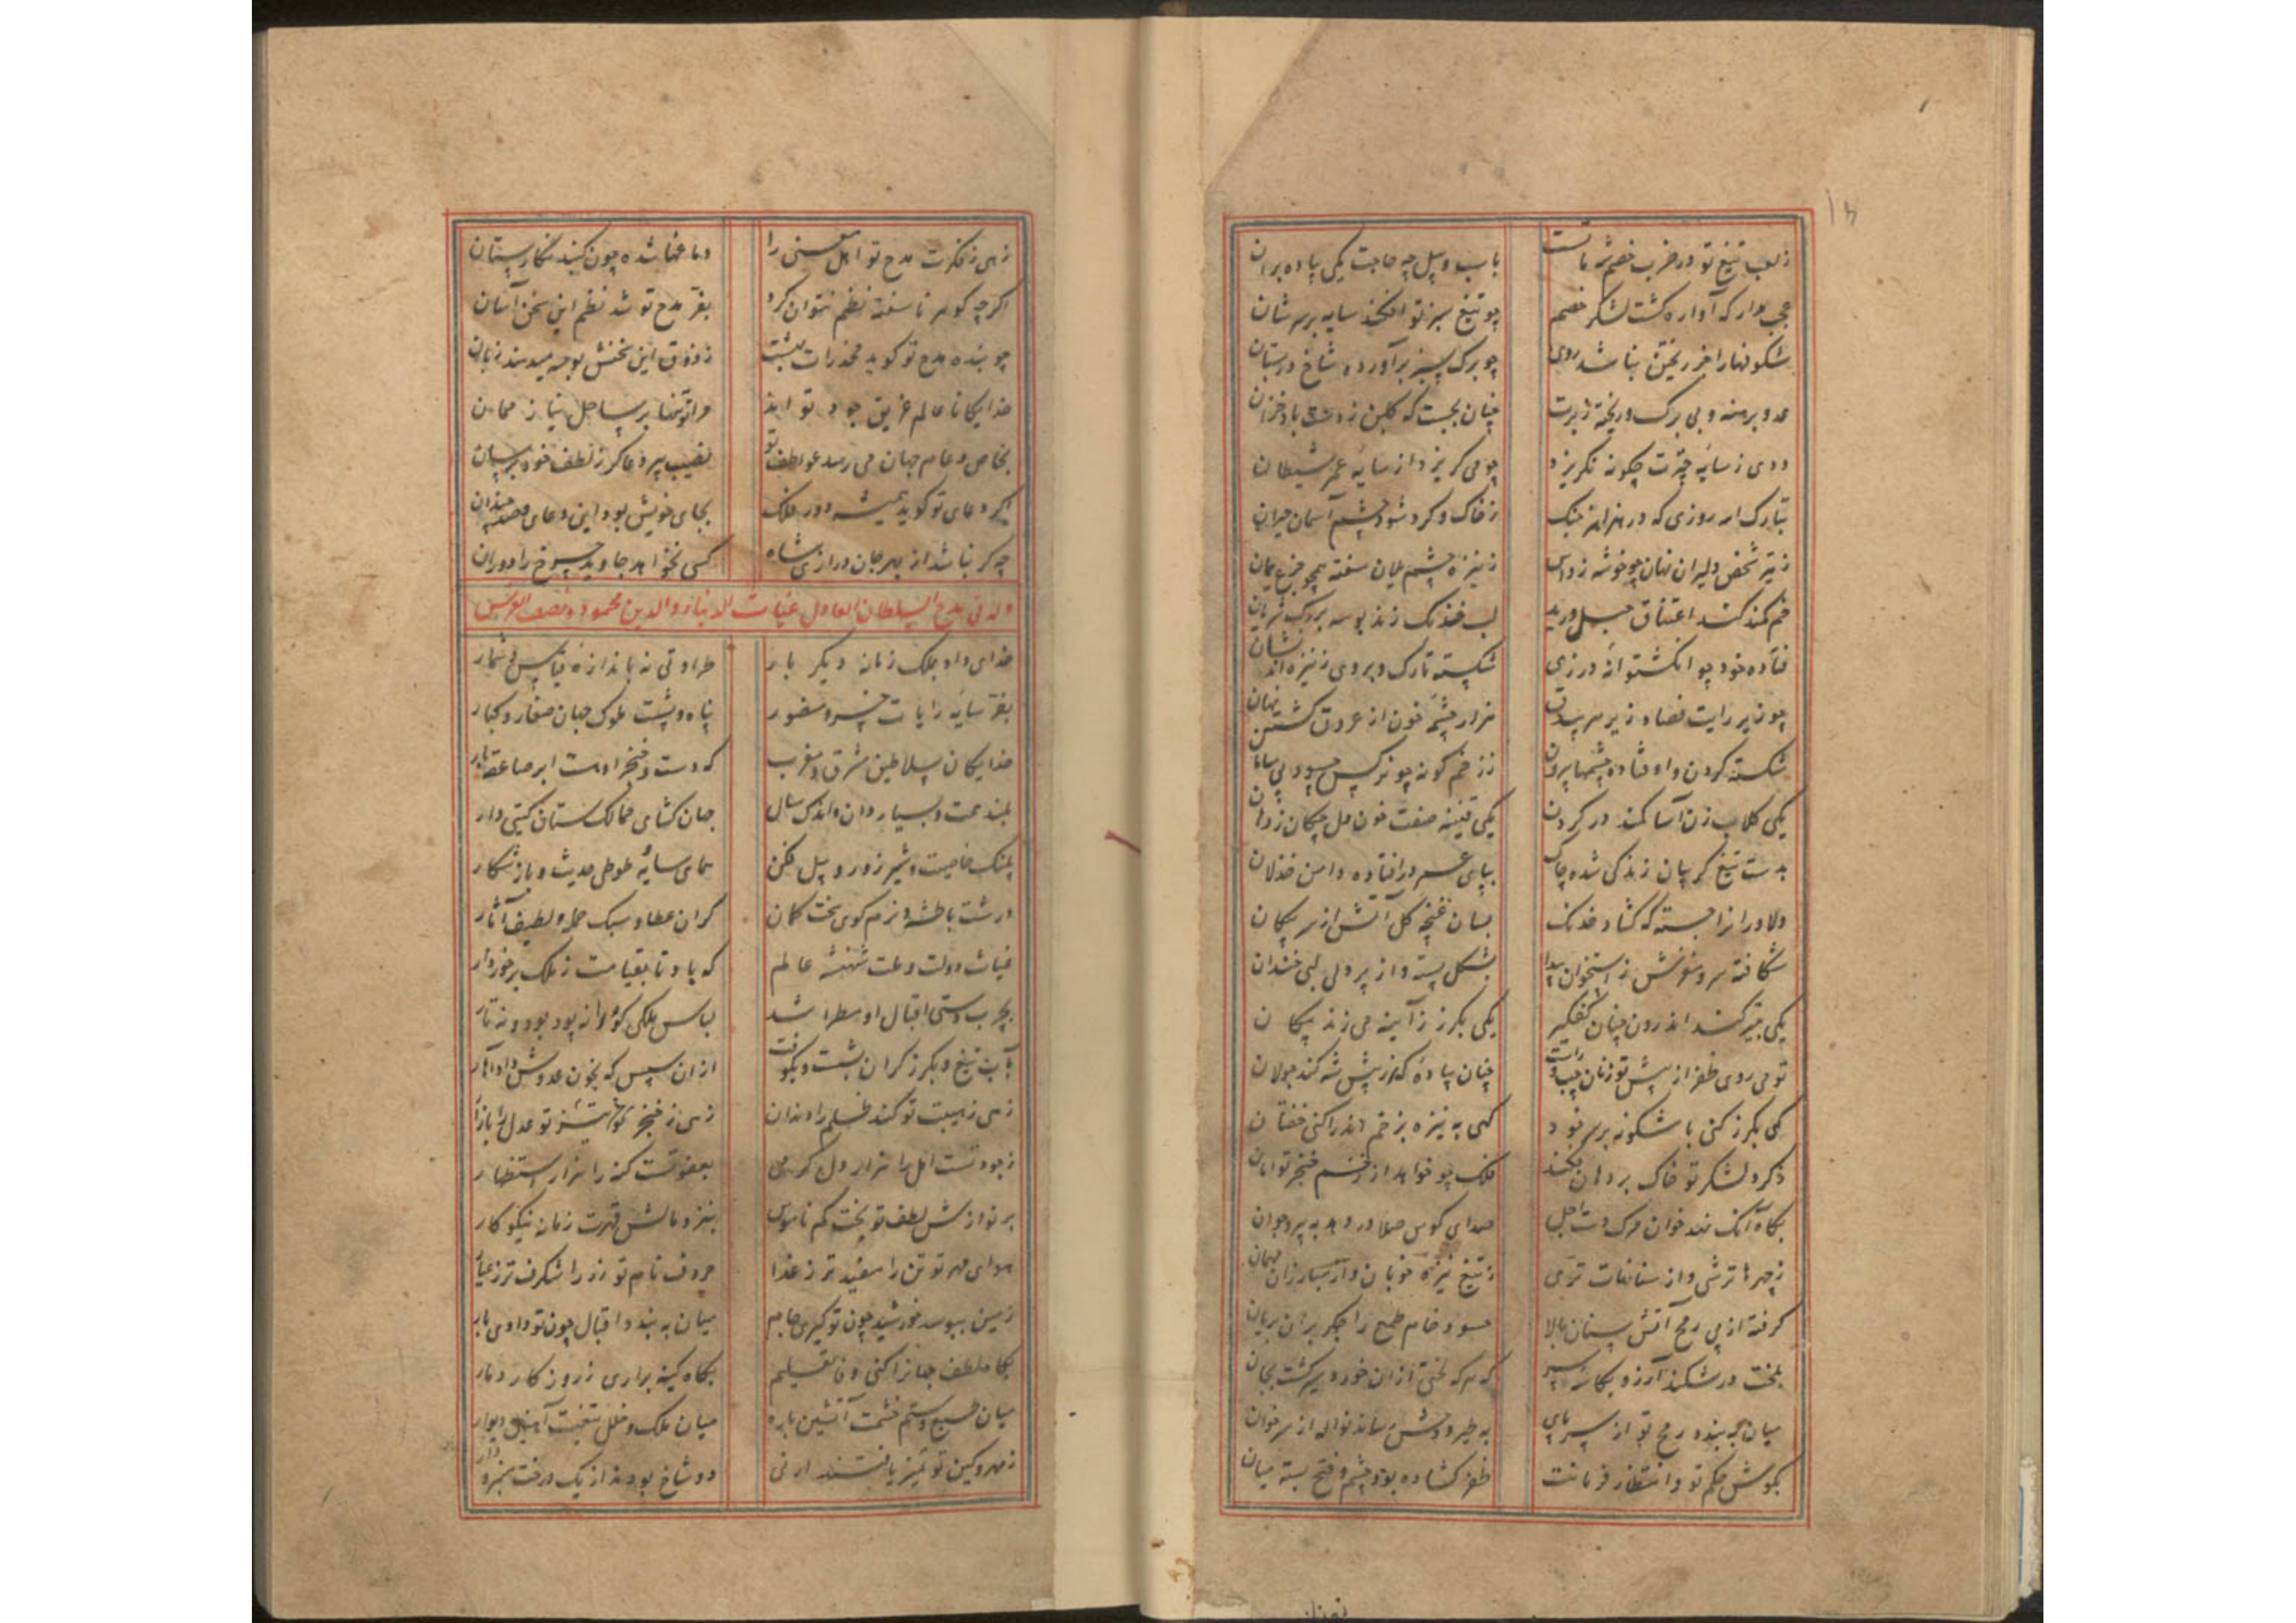 زلعب تیغ تو در حرب خصم شه ماتست باسب و پیل چه حاجت یکی پیاده بران
عجب مدار که آواره گشت لشکر خصم چو تیغ سبز تو افکند سایه بر سرشان
شکوفها را خر ریختن نباشد روی چو برک سبز برآورده شاخ در بستان
عدو برهنه و بی برک و ریخته چنان بجست که گلبن ز باد خزان
ددی ز سایه چترت چگونه نگریزد چو می گریزد از سایه عمر شیطان
تبارک الله روزی که در هزاهز جنک ز خاک و گرد شود چشم آسمان حیران
ز تیر شخص دلیران نهان چو خوشه ز داس ز نیزه چشم یلان سفته همچو جزع یمان
خم کمند کند اعتناق حبل ورید لب خدنک زند بوسه بر رک شریان
فتاده خود چو انگشتوانه درزی شکسته تارک و بروی ز نیزه اند نشان
چون زیر رایت فصاد زیر سر هزار چشمه خون از عروق گشتن نهان
شکسته گردن و اوفتاده چشمها بیرون ز زخم گونه چو نرگس حسود بی سامان
یکی گلاب زن آسا کمند در گردن یکی قنینه صفت خون دل چکان ز دهان
بدست تیغ گریبان زندگی شده چاک بپای عمر در افتاده دامن خذلان
دلاورانرا جسته که گشاد خدنک بسان غنچه گل آتش از سر پیکان
شکافته سر و مغزش ز استخوان پیدا بشکل پسته و از پردلی لبی خندان
یکی بتیر کند اندرون چنان کفگیر یکی بگرز ز آینه می زند پیکان
تو می روی ظفر از پیش تو زنان چپ و راست چنان پیاده که از پیش شه کند جولان
گهی بگرز کنی با شکونه بر سر خود گهی به نیزه بزخم اندرا کنی خفتان
ز گرد لشکر تو خاک بر دهان فکند فلک چو خواهد از زخم خنجر تو امان
بگاه آنک نهد خوان مرک دست اجل صدای کوس صلا در دهد به پیر و جوان
ز چهرها ترشی و از سنانهات تری ز تیغ نیزه خوبان و از مبارزان مهمان
گرفته از پی رمح آتش سنان بالا حسود خام طمع را جگر بران بریان
بلخت درشکند آرزو بکاسه سر که هر که لختی ازان خورد سیر گشت بجان
میان چو بنده رمح تو از سر پای به طیر و وحش رساند نواله از سر خوان
بگوش حکم تو و انتظار فرمانت ظفر گشاده بود چشم و فتح بسته میان
زهی ز فکرت مدح تو اهل معنی را دماغها شده چون گنبد نگارستان
اگر چه گوهر ناسفته نظم نتوان کرد بفر مدح تو شد نظم این سخن آسان
چو بنده مدح تو گوید مخدرات بهشت ز ذوق این سخنش بوسه میدهند زبان
خدایگانا عالم غریق جود تو اند مرا تو تنها بر ساحل نیاز ممان
بخاص و عام جهان می رسد عواطف تو نصیب پیر دعاگر ز لطف خود برسان
اگر دعای تو گوید همیشه دور فلک بجای خویش بود این دعای صد چندان
چه گر نباشد از بهر جان درازی شاه کسی نخواهد جاوید چرخ را دوران
وله فی مدح السلطان العادل غیاث الدنیا و الدین محمود
خدای داد بملک زمانه دیگر بار طراوتی نه باندازه قیاس و شمار
بفر سایه رایات خسرو منصور پناه و پشت ملوک جهان صغار و کبار
خدایگان سلاطین مشرق و مغرب که دست و خنجر اوست ابر صاعقه بار
بلند همت و بسیار دان و اندک سال جهان گشای ممالک ستان گیتی دار
پلنک خاصیت و شیر زور و پیل فکن همای سایه طوطی حدیث و باز شکار
درشت باطشه و نرم گوی سخت کمان گران عطا و سبک حمله و لطیف آثار
غیاث دولت و ملت شهنشه عالم که باد تا بقیامت ز ملک برخوردار
بچرب دستی اقبال او مطرا شد لباس ملکی کورا نه پود بود و نه تار
بآب تیغ و بگرز گران بشست و بکوفت ازان سپس که بخون عدوش داد آهار
زهی ز هیبت تو کند ظلم را دندان زهی ز خنجر تو تیز عدل را بازار
ز جود تست امل را هزار دل گرمی بعفو تست گنه را هزار استظهار
بر نوازش لطف تو بخت کم ناموس بنزد مالش قهرت زمانه نیکوکار
هوای مهر تو تن را مفید تر ز غذا حروف نام تو زر را شگرف تر ز عیار
زمین ببوسد خورشید چون تو گیری جام میان به بندد اقبال چون تو دادی بار
بگاه لطف جهانرا کنی وفا تعلیم بگاه کینه براری ز روزگار دمار
میان و ستم خشمت آتشین باره میان ملک و خلل تیغت آهنین دیوار
ز مهر و کین تو تمییز یافتند ارنی دو شاخ بودند از یک درخت منبر و دار